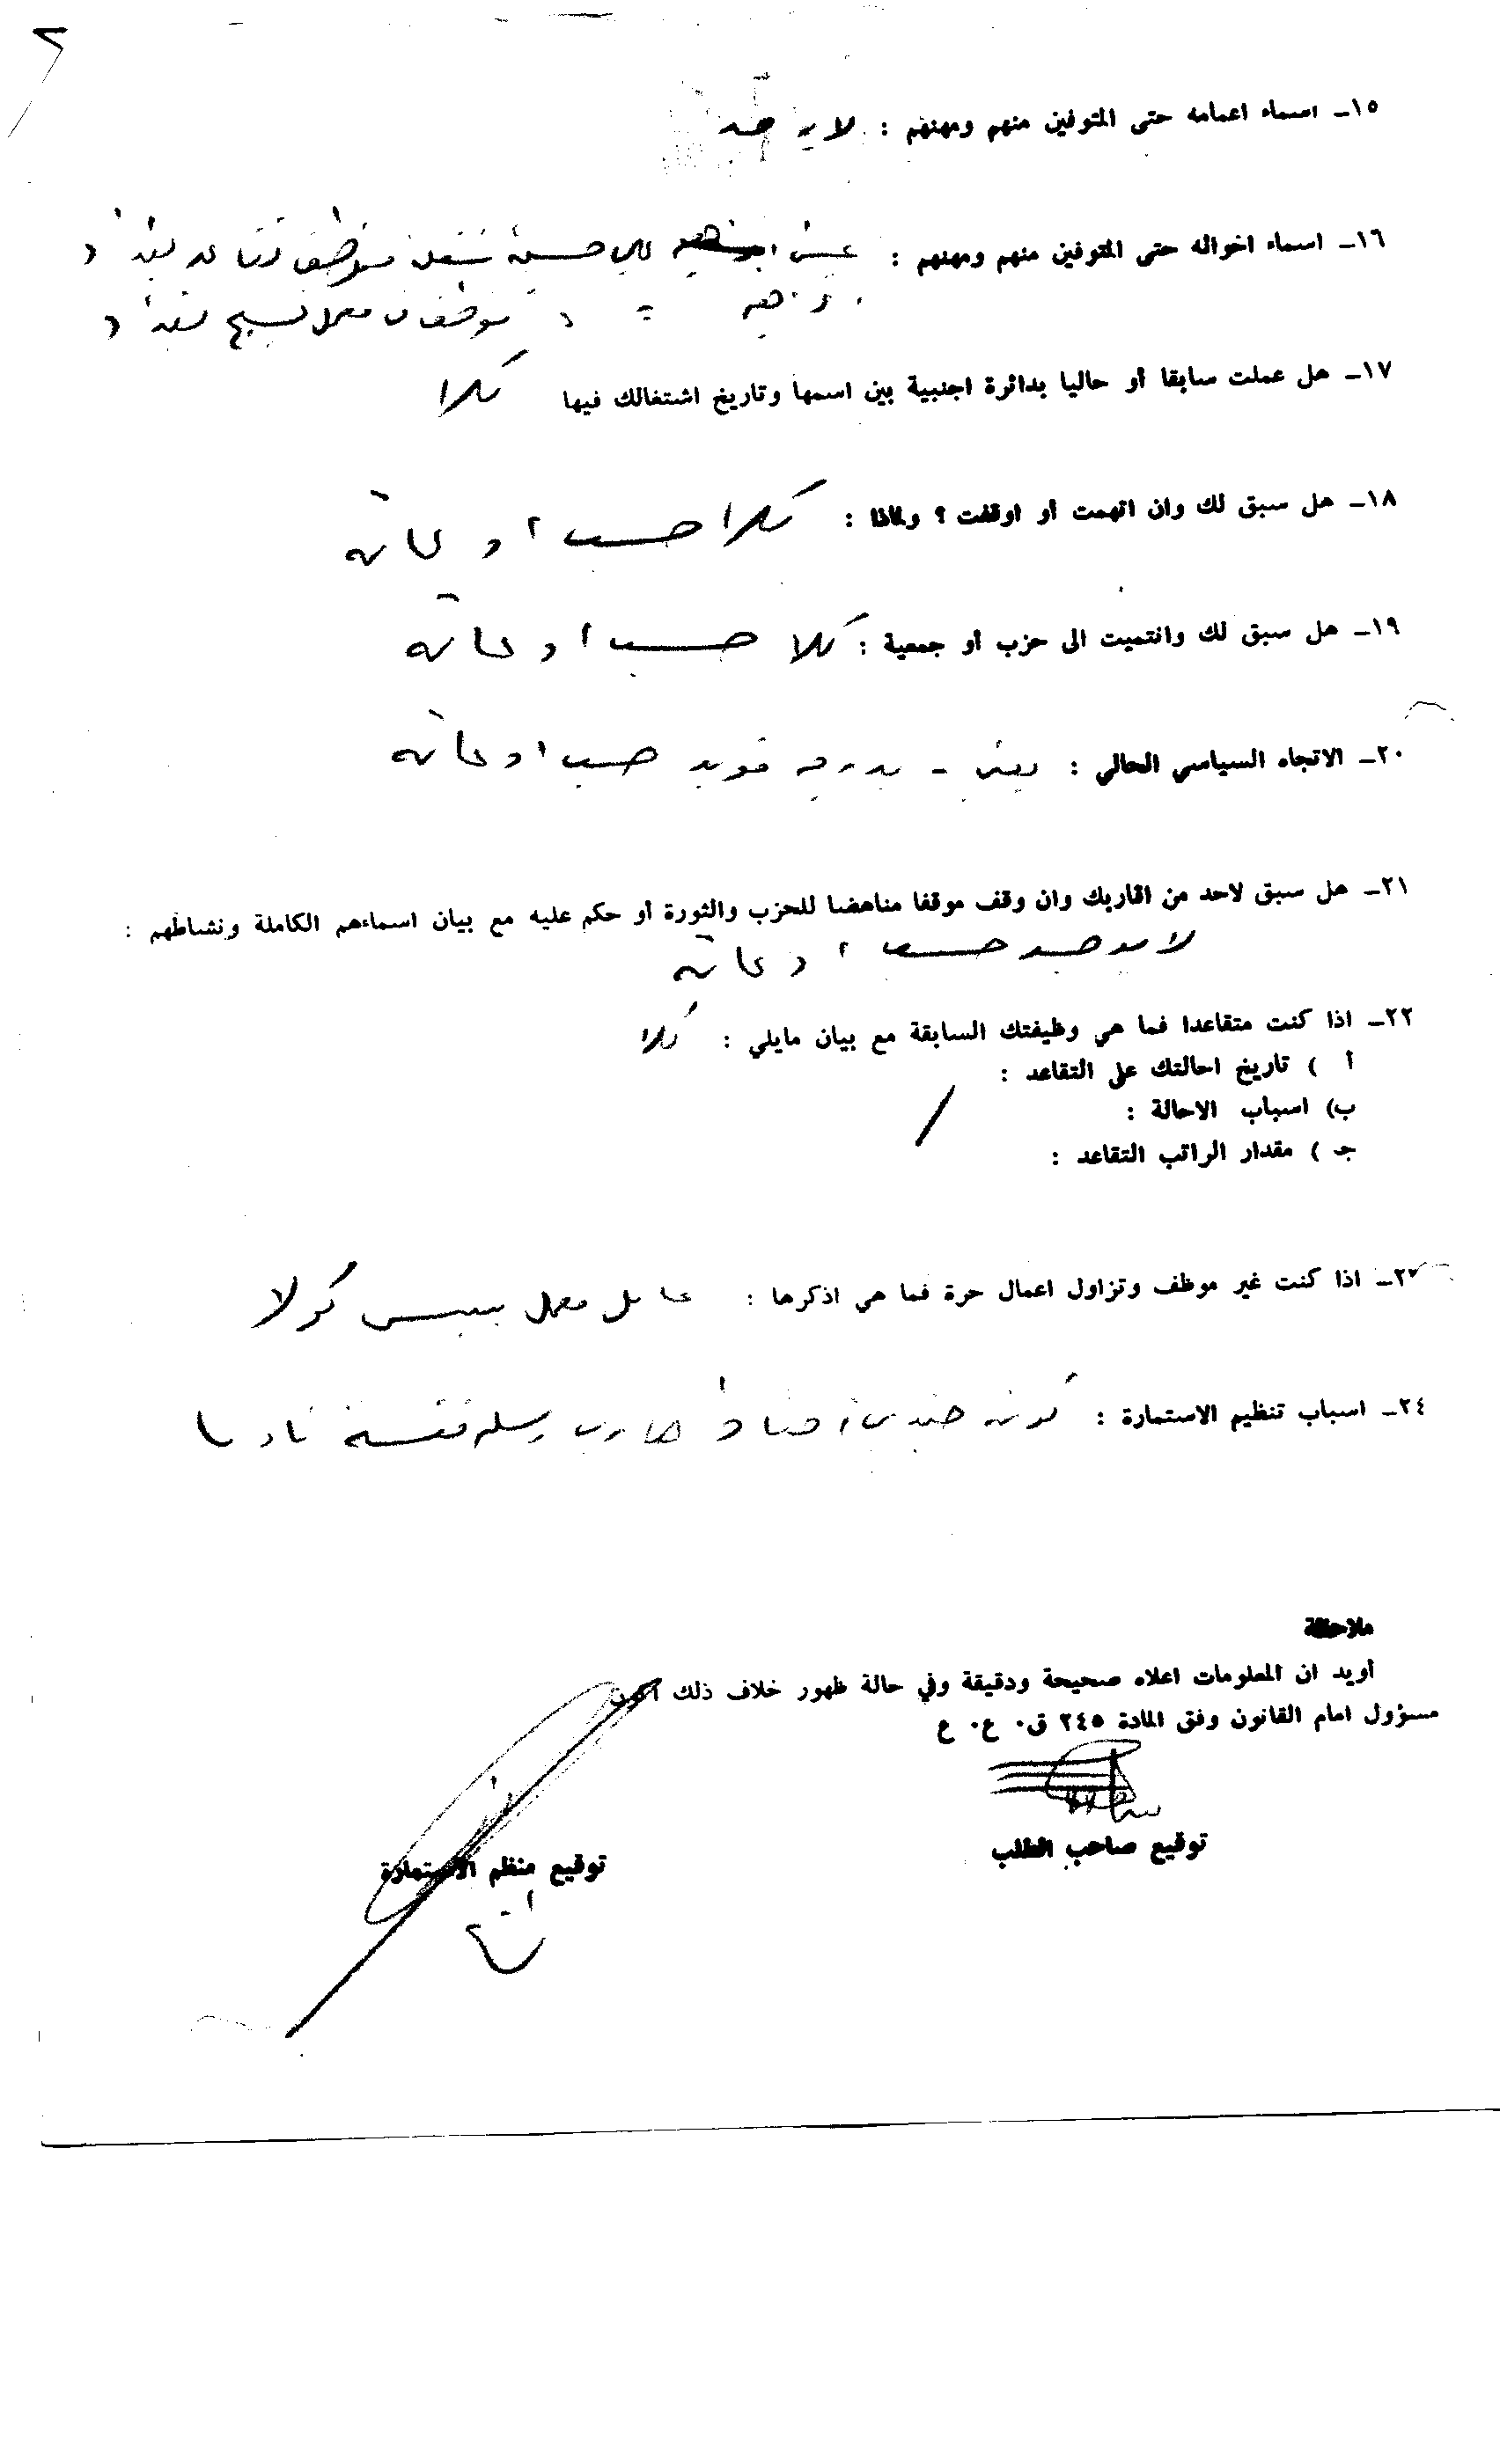 ٢
١٥ـ اسماء اعمامه حتى المتوفين منهم ومهنهم : لا يوجد
١٦ـ اسماء اخواله حتى المتوفين منهم ومهنهم : حسين موظف بغداد
موظف معمل نسيج بغداد
١٧ـ هل عملت سابقا أو حاليا بدائرة اجنبية بين اسمها وتاريخ اشتغالك فيها كلا
١٨ـ هل سبق لك وان اتهمت أو اوقفت ؟ ولماذا : كلا حسب ادعائه
١٩ـ هل سبق لك وانتميت الى حزب أو جمعية : كلا حسب ادعائه
٢٠ـ الاتجاه السياسي الحالي : بعثي ـ بدرجة مؤيد حسب ادعائه
٢١ـ هل سبق لاحد من اقاربك وان وقف موقفا مناهضا للحزب والثورة أو حكم عليه مع بيان اسماءهم الكاملة ونشاطهم :
لا يوجد حسب ادعائه
٢٢ـ اذا كنت متقاعدا فما هي وظيفتك السابقة مع بيان مايلي : كلا
أ ) تاريخ احالتك على التقاعد :
ب) اسباب الاحالة :
جـ ) مقدار الراتب التقاعد :
٢٣ـ اذا كنت غير موظف وتزاول اعمال حرة فما هي اذكرها : عامل معمل ببسي كولا
٢٤ـ اسباب تنظيم الاستمارة : كونه جندي هارب وسلم نفسه
ملاحظة
أويد ان المعلومات اعلاه صحيحة ودقيقة وفي حالة ظهور خلاف ذلك اكون
مسؤول امام القانون وفق المادة ٢٤٥ ق٠ ع٠ ع
توقيع صاحب الطلب
توقيع منظم الاستمارة